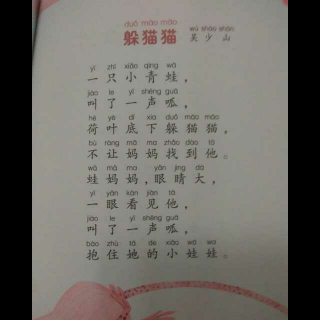 duǒ māo māo
躲猫猫
wú shào shān
吴少山
yì zhī xiǎo qīng wā
一只小青蛙，
jiào le yì shēng guā
叫了一声呱，
hé yè dǐ xia duǒ māo māo
荷叶底下躲猫猫，
bù ràng mā ma zhǎo dào tā
不让妈妈找到他。
wā mā ma yǎn jīng dà
蛙妈妈，眼睛大，
yì yǎn kàn jiàn tā
一眼看见他，
jiào le yì shēng guā
叫了一声呱，
bào zhù tā de xiǎo wá wa
抱住她的小娃娃。